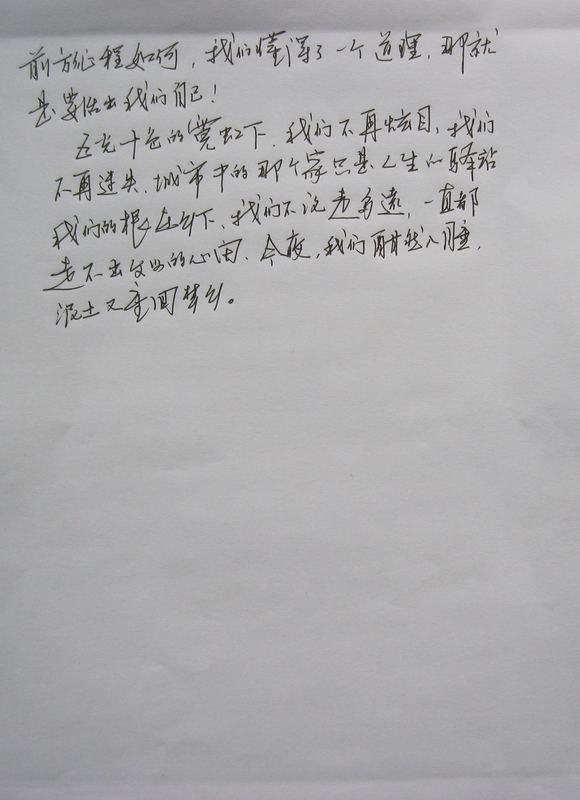 前方征程如何，我们懂得了一个道理，那就
是要做出我们自己！
五光十色的霓虹下，我们不再炫目，我们
不再迷失，城市中的那个家只是人生的驿站
我们的根在乡下，我们不论走多远，一直都
走不出父母的心田，今夜，我们酣然入睡，
泥土又重回梦乡。